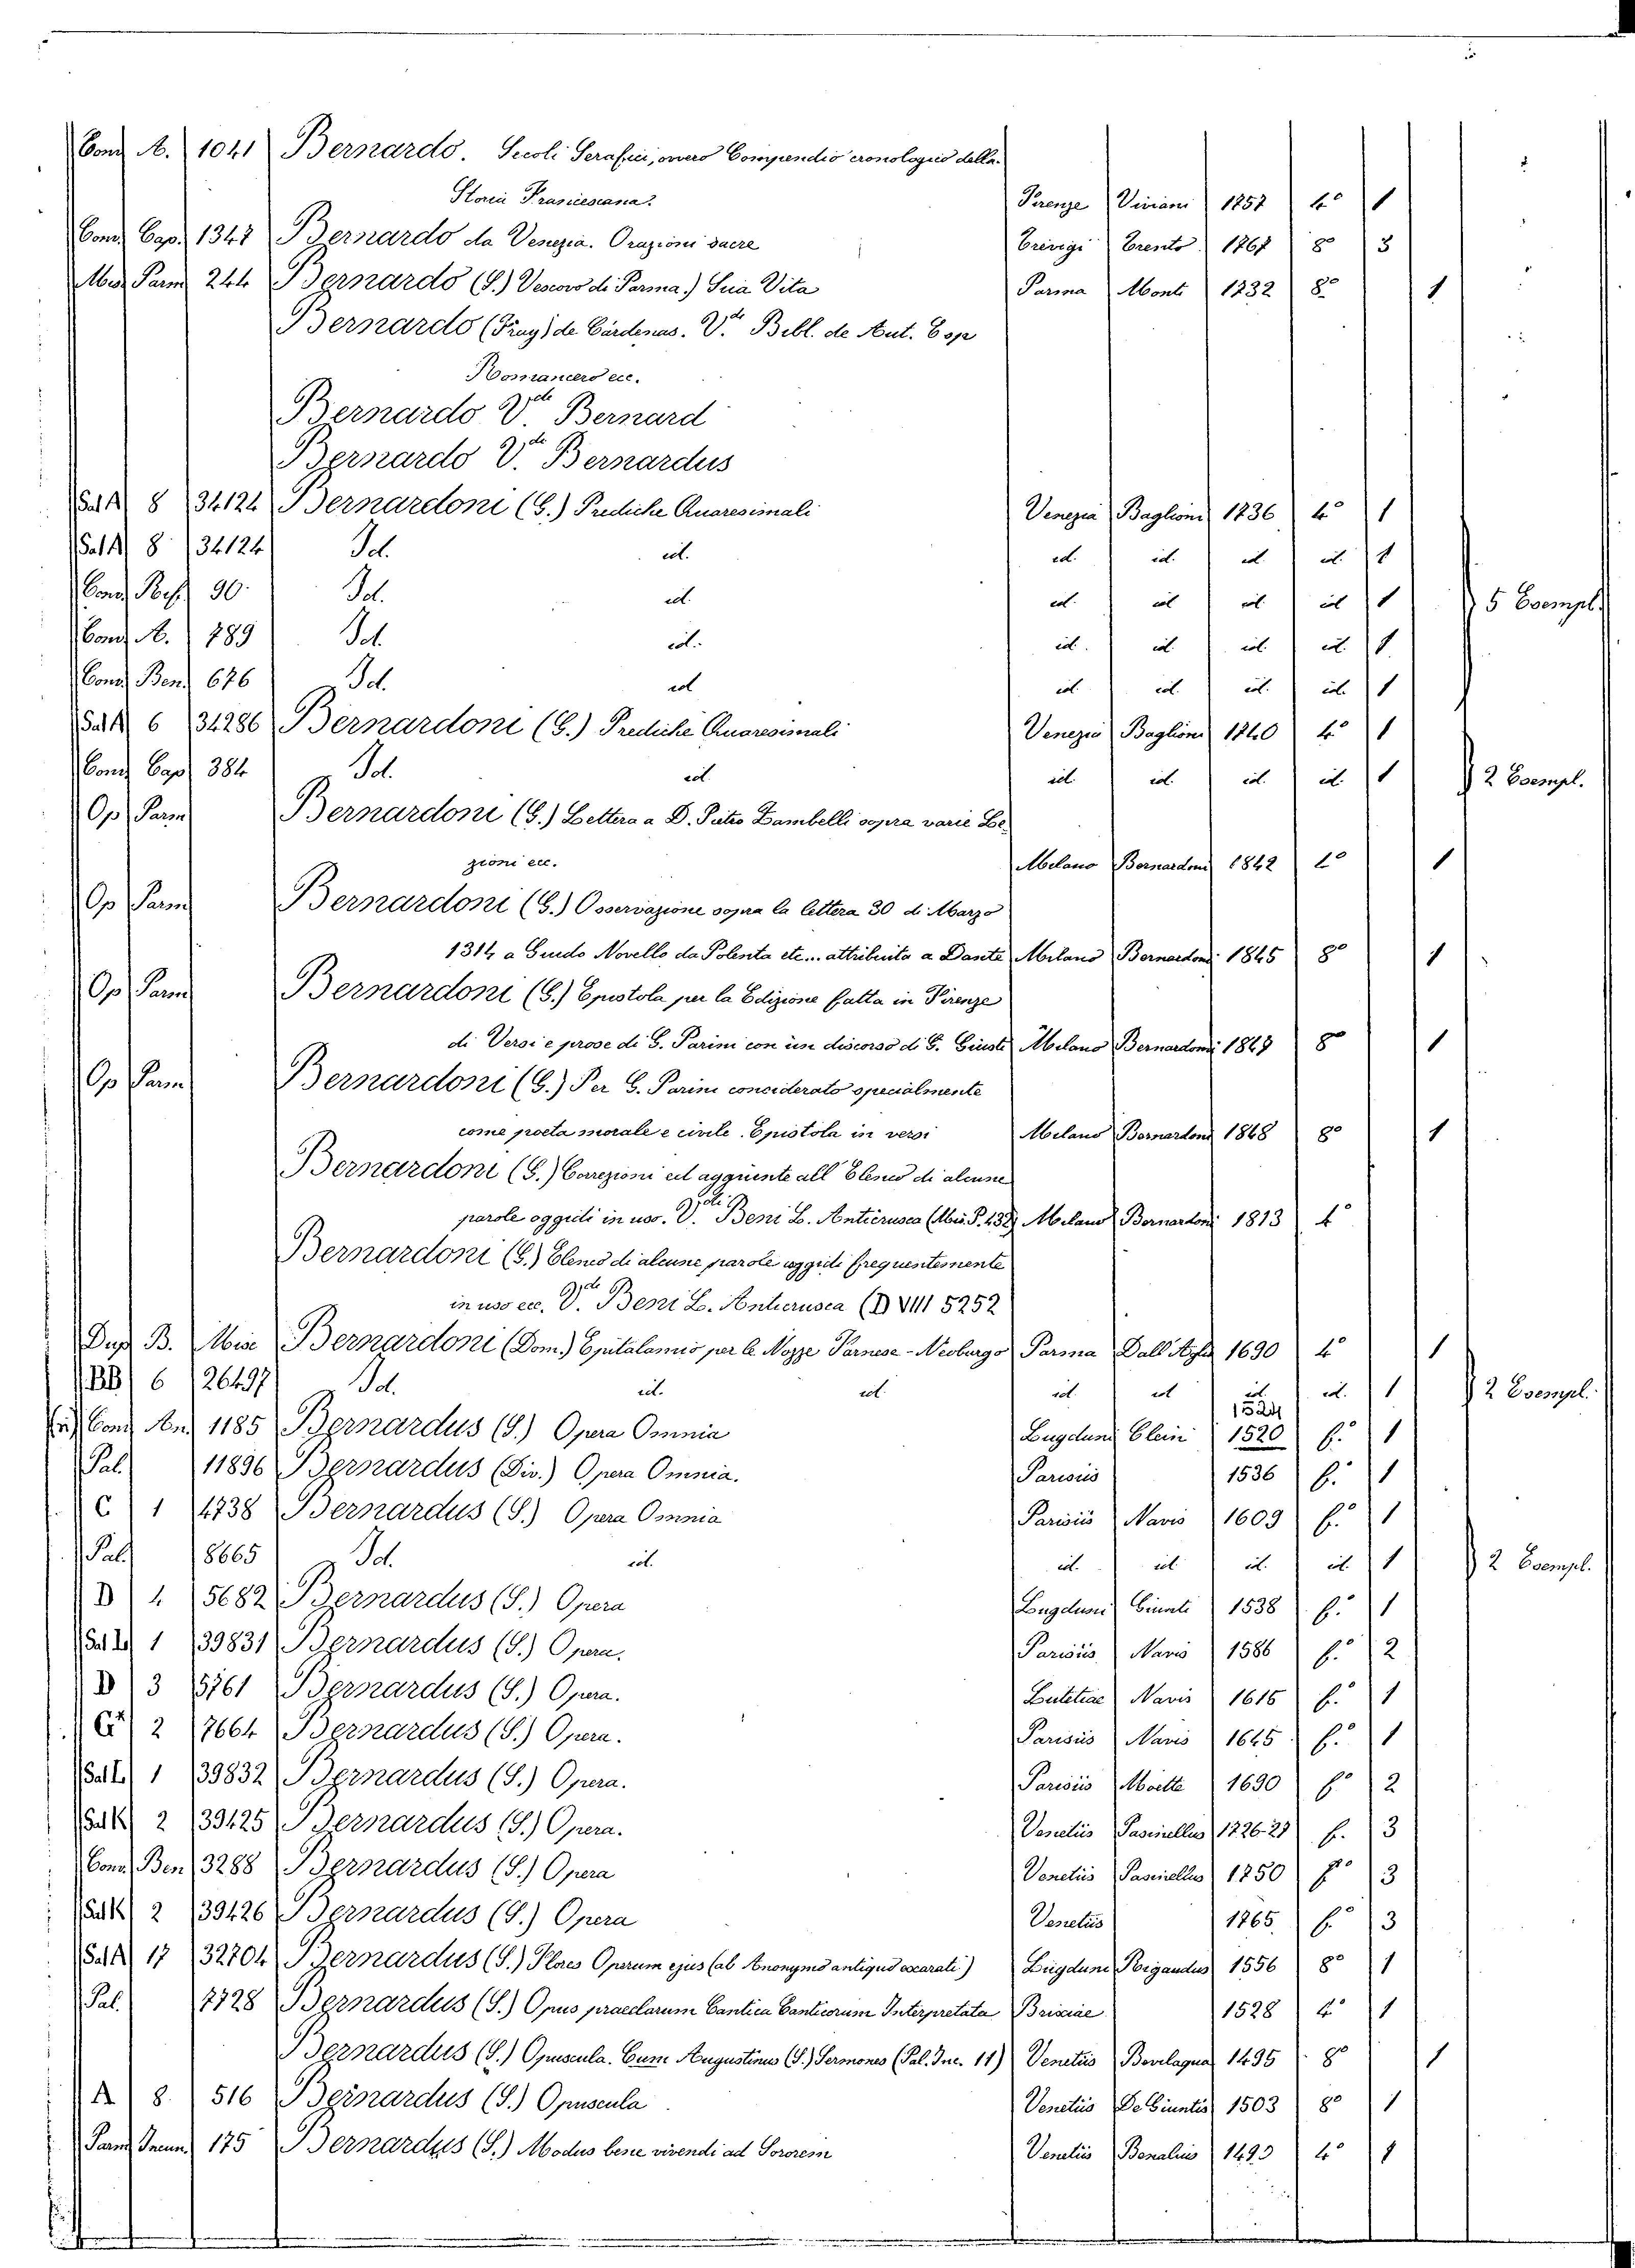 Conv A. 1041 Bernardo. Secoli Serafici, ovvero Compendio cronologico della
Storia Francescana. Firenze Viviani 1757 4° 1
Conv Cap. 1347 Bernardo da Venezia. Orazioni sacre Trevigi Trento 1767 8° 3
Misc Parm 244 Bernardo (S.) Vescovo di Parma.) Sua Vita Parma Monti 1732 8° 1
Bernardo (Fray) de Cárdenas. V.de Bibl. de Aut. Esp
Romancero ecc.
Bernardo V.de Bernard
Bernardo V.de Bernardus
Sal A 8 34124 Bernardoni (G.) Prediche Quaresimali Venezia Baglioni 1736 4° 1
Sal A 8 34124 Id. id. id. id. id. id. 1
Conv Rif. 90 Id. id. id. id. id. id. 1 5 Esempl.
Conv A. 789 Id. id. id. id. id. id. 1
Conv Ben. 676 Id. id. id. id. id. id. 1
Sal A 6 34286 Bernardoni (G.) Prediche Quaresimali Venezia Baglioni 1740 4° 1
Conv Cap 384 Id. id. id. id. id. id. 1 2 Esempl.
Op Parm Bernardoni (G.) Lettera a D. Pietro Zambelli sopra varie Le-
zioni ecc. Milano Bernardoni 1842 1
Op Parm Bernardoni (G.) Osservazione sopra la lettera 30 di Marzo
1314 a Guido Novello da Polenta etc... attribuita a Dante Milano Bernardoni 1845 8° 1
Op Parm Bernardoni (G.) Epistola per la Edizione fatta in Firenze
di Versi e prose di G. Parini con un discorso di G. Giusti Milano Bernardoni 1847 8° 1
Op Parm Bernardoni (G.) Per G. Parini considerato specialmente
come poeta morale e civile. Epistola in versi Milano Bernardoni 1848 8° 1
Bernardoni (G.) Correzioni ed aggiunte all'Elenco di alcune
parole oggidi in uso. V.di Beni L. Anticrusca (Mis. P. 232) Milano Bernardoni 1813 4°
Bernardoni (G.) Elenco di alcune parole oggidi frequentemente
in uso ecc. V.de Beni L. Anticrusca (D VIII 5252
Dup B. Misc Bernardoni (Dom.) Epitalamio per le Nozze Farnese-Neoburgo Parma Dall'Aglio 1690 4° 1
BB 6 26497 Id. id. id. id. id. id. id. 1 2 Esempl.
1524
Conv An. 1185 Bernardus (S.) Opera Omnia Lugduni Clein 1520 f.° 1
Pal. 11896 Bernardus (Div.) Opera Omnia. Parisiis 1536 f.° 1
C 1 4738 Bernardus (S.) Opera Omnia Parisiis Navis 1609 f.° 1
Pal. 8665 Id. id. id. id. id. id. 1 2 Esempl.
D 4 5682 Bernardus (S.) Opera Lugduni Giunti 1538 f.° 1
Sal L 1 39831 Bernardus (S.) Opera. Parisiis Navis 1586 f.° 2
D 3 5761 Bernardus (S.) Opera. Lutetiae Navis 1615 f.° 1
G* 2 7664 Bernardus (S.) Opera. Parisiis Navis 1645 f.° 1
Sal L 1 39832 Bernardus (S.) Opera. Parisiis Moette 1690 f.° 2
Sal K 2 39425 Bernardus (S.) Opera. Venetiis Pasinellus 1726-27 f. 3
Conv Ben 3288 Bernardus (S.) Opera Venetiis Pasinellus 1750 f.° 3
Sal K 2 39426 Bernardus (S.) Opera Venetiis 1765 f.° 3
Sal A 17 32704 Bernardus (S.) Flores Operum ejus (ab Anonymo antiquo exarati) Lugduni Rigaudus 1556 8° 1
Pal. 7728 Bernardus (S.) Opus praeclarum Cantica Canticorum Interpretata Brixiae 1528 4° 1
Bernardus (S.) Opuscula. Cum Augustinus (S.) Sermones (Pal. Inc. 11) Venetiis Bevilaqua 1495 8° 1
A 8. 516 Bernardus (S.) Opuscula Venetiis De Giuntis 1503 8° 1
Parm Incun 175 Bernardus (S.) Modus bene vivendi ad Sororem Venetiis Benalius 1493 4° 1